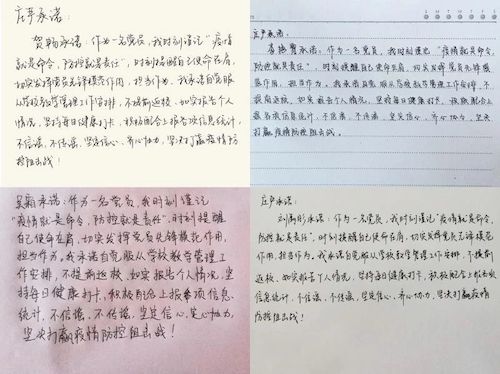 庄严承诺:
贺畅承诺:作为一名党员,我时刻谨记“疫情
就是命令,防控就是责任”,时刻提醒自己使命在肩,
切实发挥党员先锋模范作用,担当作为。我承诺自觉服
从学校教学管理工作安排,不提前返校,如实报告个人
情况,坚持每日健康打卡,积极配合上报各项信息统计,
不信谣,不传谣,坚定信心,齐心协力,坚决打赢疫情防
控阻击战!
庄严承诺:
承诺:作为一名党员,我时刻谨记“疫情就是命令,防
控就是责任”,时刻提醒自己使命在肩,切实发挥党员先锋模
范作用,担当作为。我承诺自觉服从学校教学管理工作安排,不
提前返校,如实报告个人情况,坚持每日健康打卡,积极配合上
报各项信息统计,不信谣,不传谣,坚定信心,齐心协力,坚决
打赢疫情防控阻击战。
承诺:作为一名党员,我时刻谨记
“疫情就是命令,防控就是责任”,时刻提醒
自己使命在肩,切实发挥党员先锋模范作用,
担当作为,我承诺自觉服从学校教学管理工
作安排,不提前返校,如实报告个人情况,坚
持每日健康打卡,积极配合上报各项信息
统计,不信谣,不传谣,坚定信心,齐心协力,
坚决打赢疫情防控阻击战!
庄严承诺:
刘雨彤承诺:作为一名党员,我时刻谨记“疫情就是命令,
防控就是责任”,时刻提醒自己使命在肩,切实发挥党员先锋模范作
用,担当作为。我承诺自觉服从学校教学管理工作安排,不提前
返校,如实报告个人情况,坚持每日健康打卡,积极配合上报各项
信息统计,不信谣,不传谣,坚定信心,齐心协力,坚决打赢疫情
防控阻击战!